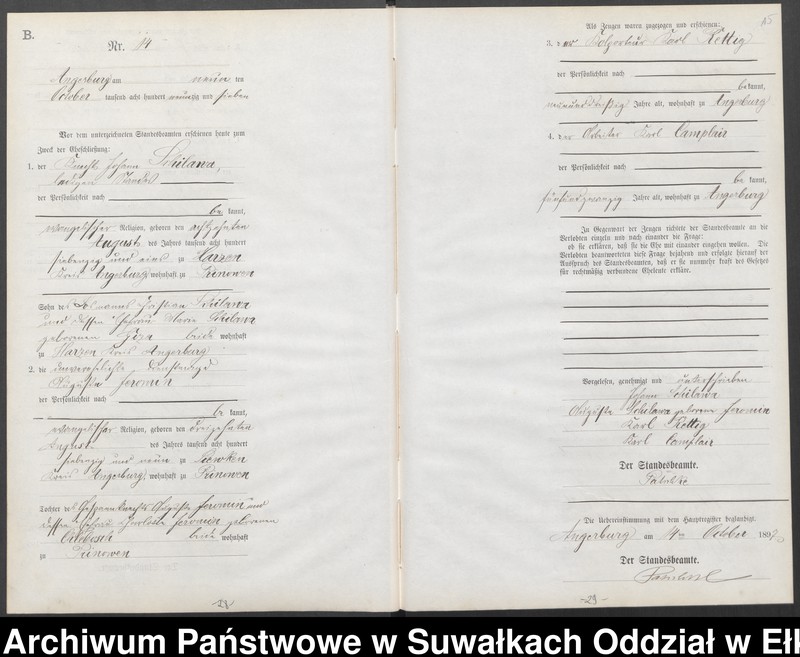 B.
Nr. 14
Angerburg am neun ten
October tausend acht hundert neunzig und sieben
Vor dem unterzeichneten Standesbeamten erschienen heute zum
Zweck der Eheschließung:
1. der Knecht Johann Schilawa,
ledigen Standes
der Persönlichkeit nach
be kannt,
evangelischer Religion, geboren den achtzehnten
August des Jahres tausend acht hundert
siebenzig und eins zu Harzen
Kreis Angerburg, wohnhaft zu
Sohn des Schilawa
und dessen Ehefrau Marie Schilawa
geborenen beide wohnhaft
zu Harzen Kreis Angerburg
2. die unverehelichte Dienstmagd
Auguste Jeromin
der Persönlichkeit nach
be kannt,
evangelischer Religion, geboren den dreizehnten
August des Jahres tausend acht hundert
siebenzig und neun zu
Kreis Angerburg, wohnhaft zu
Tochter des Jeromin und
dessen Ehefrau Jeromin geborenen
beide wohnhaft
zu
-29-
15
Als Zeugen waren zugezogen und erschienen:
3. der Karl Rettig
der Persönlichkeit nach
bekannt,
Jahre alt, wohnhaft zu Angerburg
4. der Arbeiter Karl Camplair
der Persönlichkeit nach
be kannt,
fünfundzwanzig Jahre alt, wohnhaft zu Angerburg
In Gegenwart der Zeugen richtete der Standesbeamte an die
Verlobten einzeln und nach einander die Frage:
ob sie erklären, daß sie die Ehe mit einander eingehen wollen. Die
Verlobten beantworteten diese Frage bejahend und erfolgte hierauf der
Ausspruch des Standesbeamten, daß er sie nunmehr kraft des Gesetzes
für rechtmäßig verbundene Eheleute erkläre.
Vorgelesen, genehmigt und unterschrieben
Johann Schilawa
Auguste Schilawa geborene Jeromin
Karl Rettig
Karl Camplair
Der Standesbeamte.
Die Uebereinstimmung mit dem Hauptregister beglaubigt.
Angerburg am October 1897
Der Standesbeamte.
-29-
Archiwum Państwowe w Suwałkach Oddział w Ełk